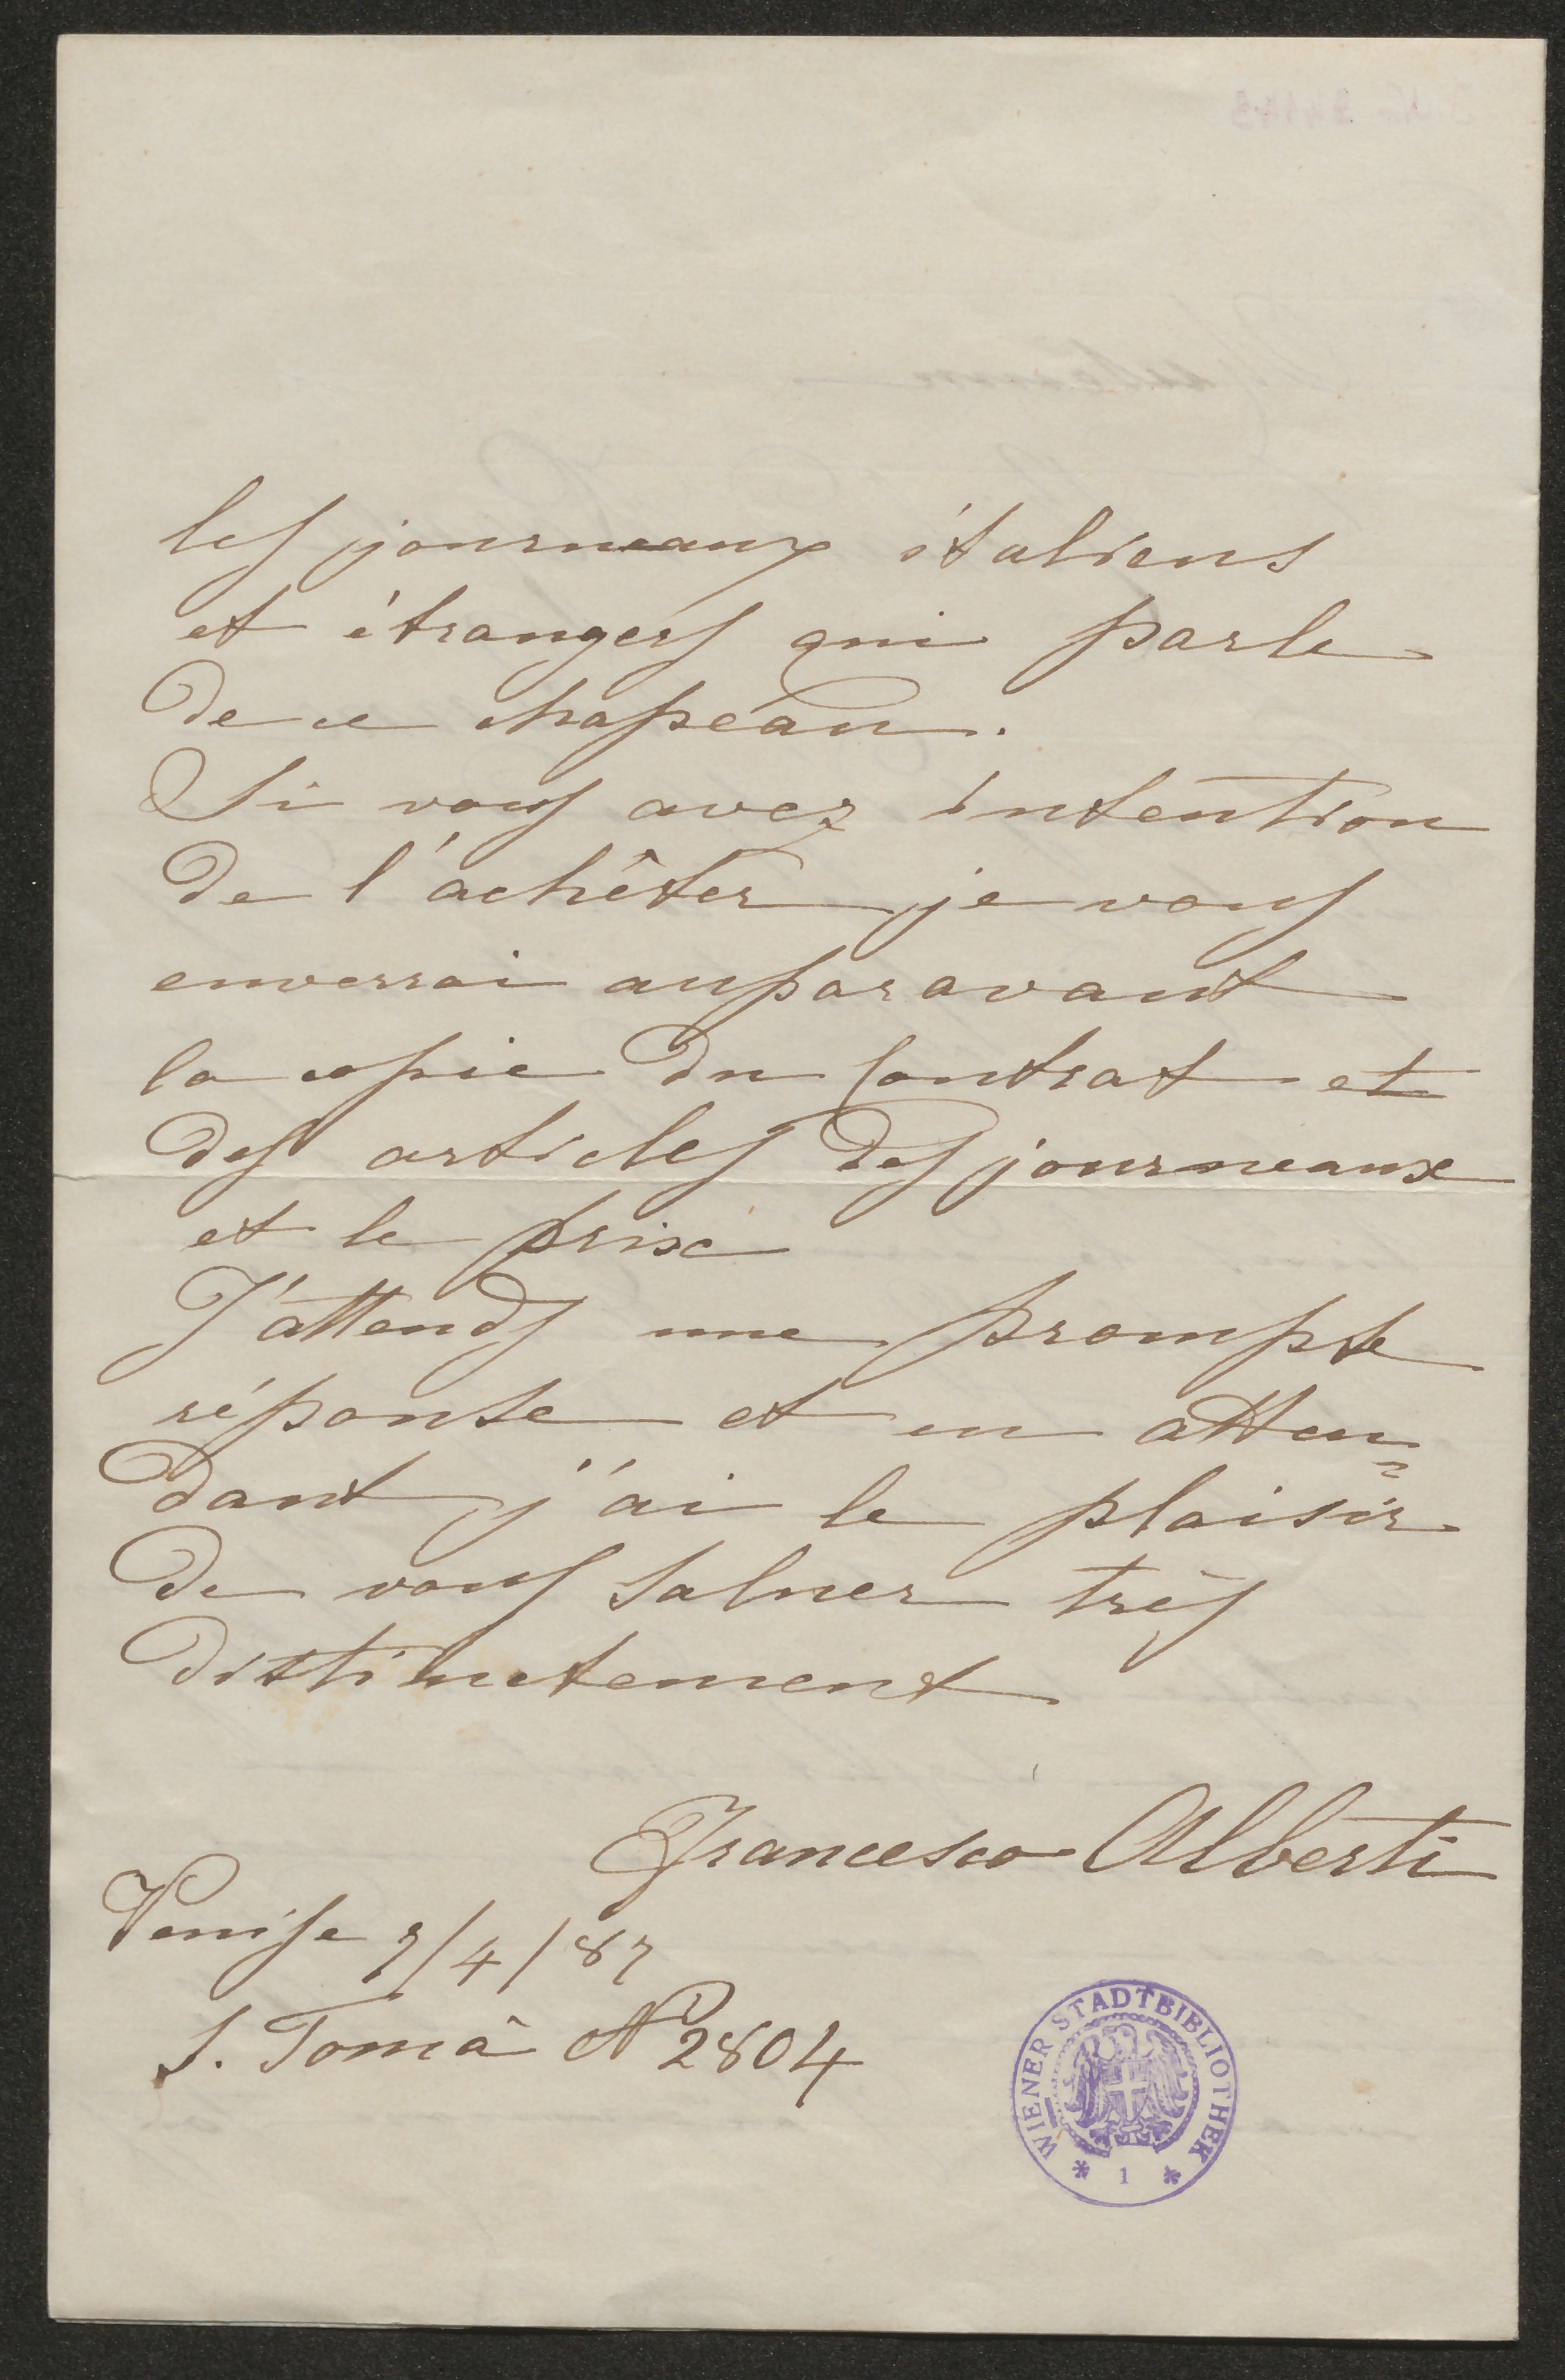 les journeaux italiens
et étrangers qui parle
de ce chapeáu.
Si vous avez intention
de l'achêter je vous
enverrai auparavant
la copie du Contrat et
des articles des journeaux
et le prix
J'attends une prompte
réponse et en atten=
dant j'ai le plaisir
de vous saluer très
distinctement
Francesco Alberti
Venise 7/4/87
S. Tomà N 2804
WIENER STADTBIBLIOTHEK
* 1 *